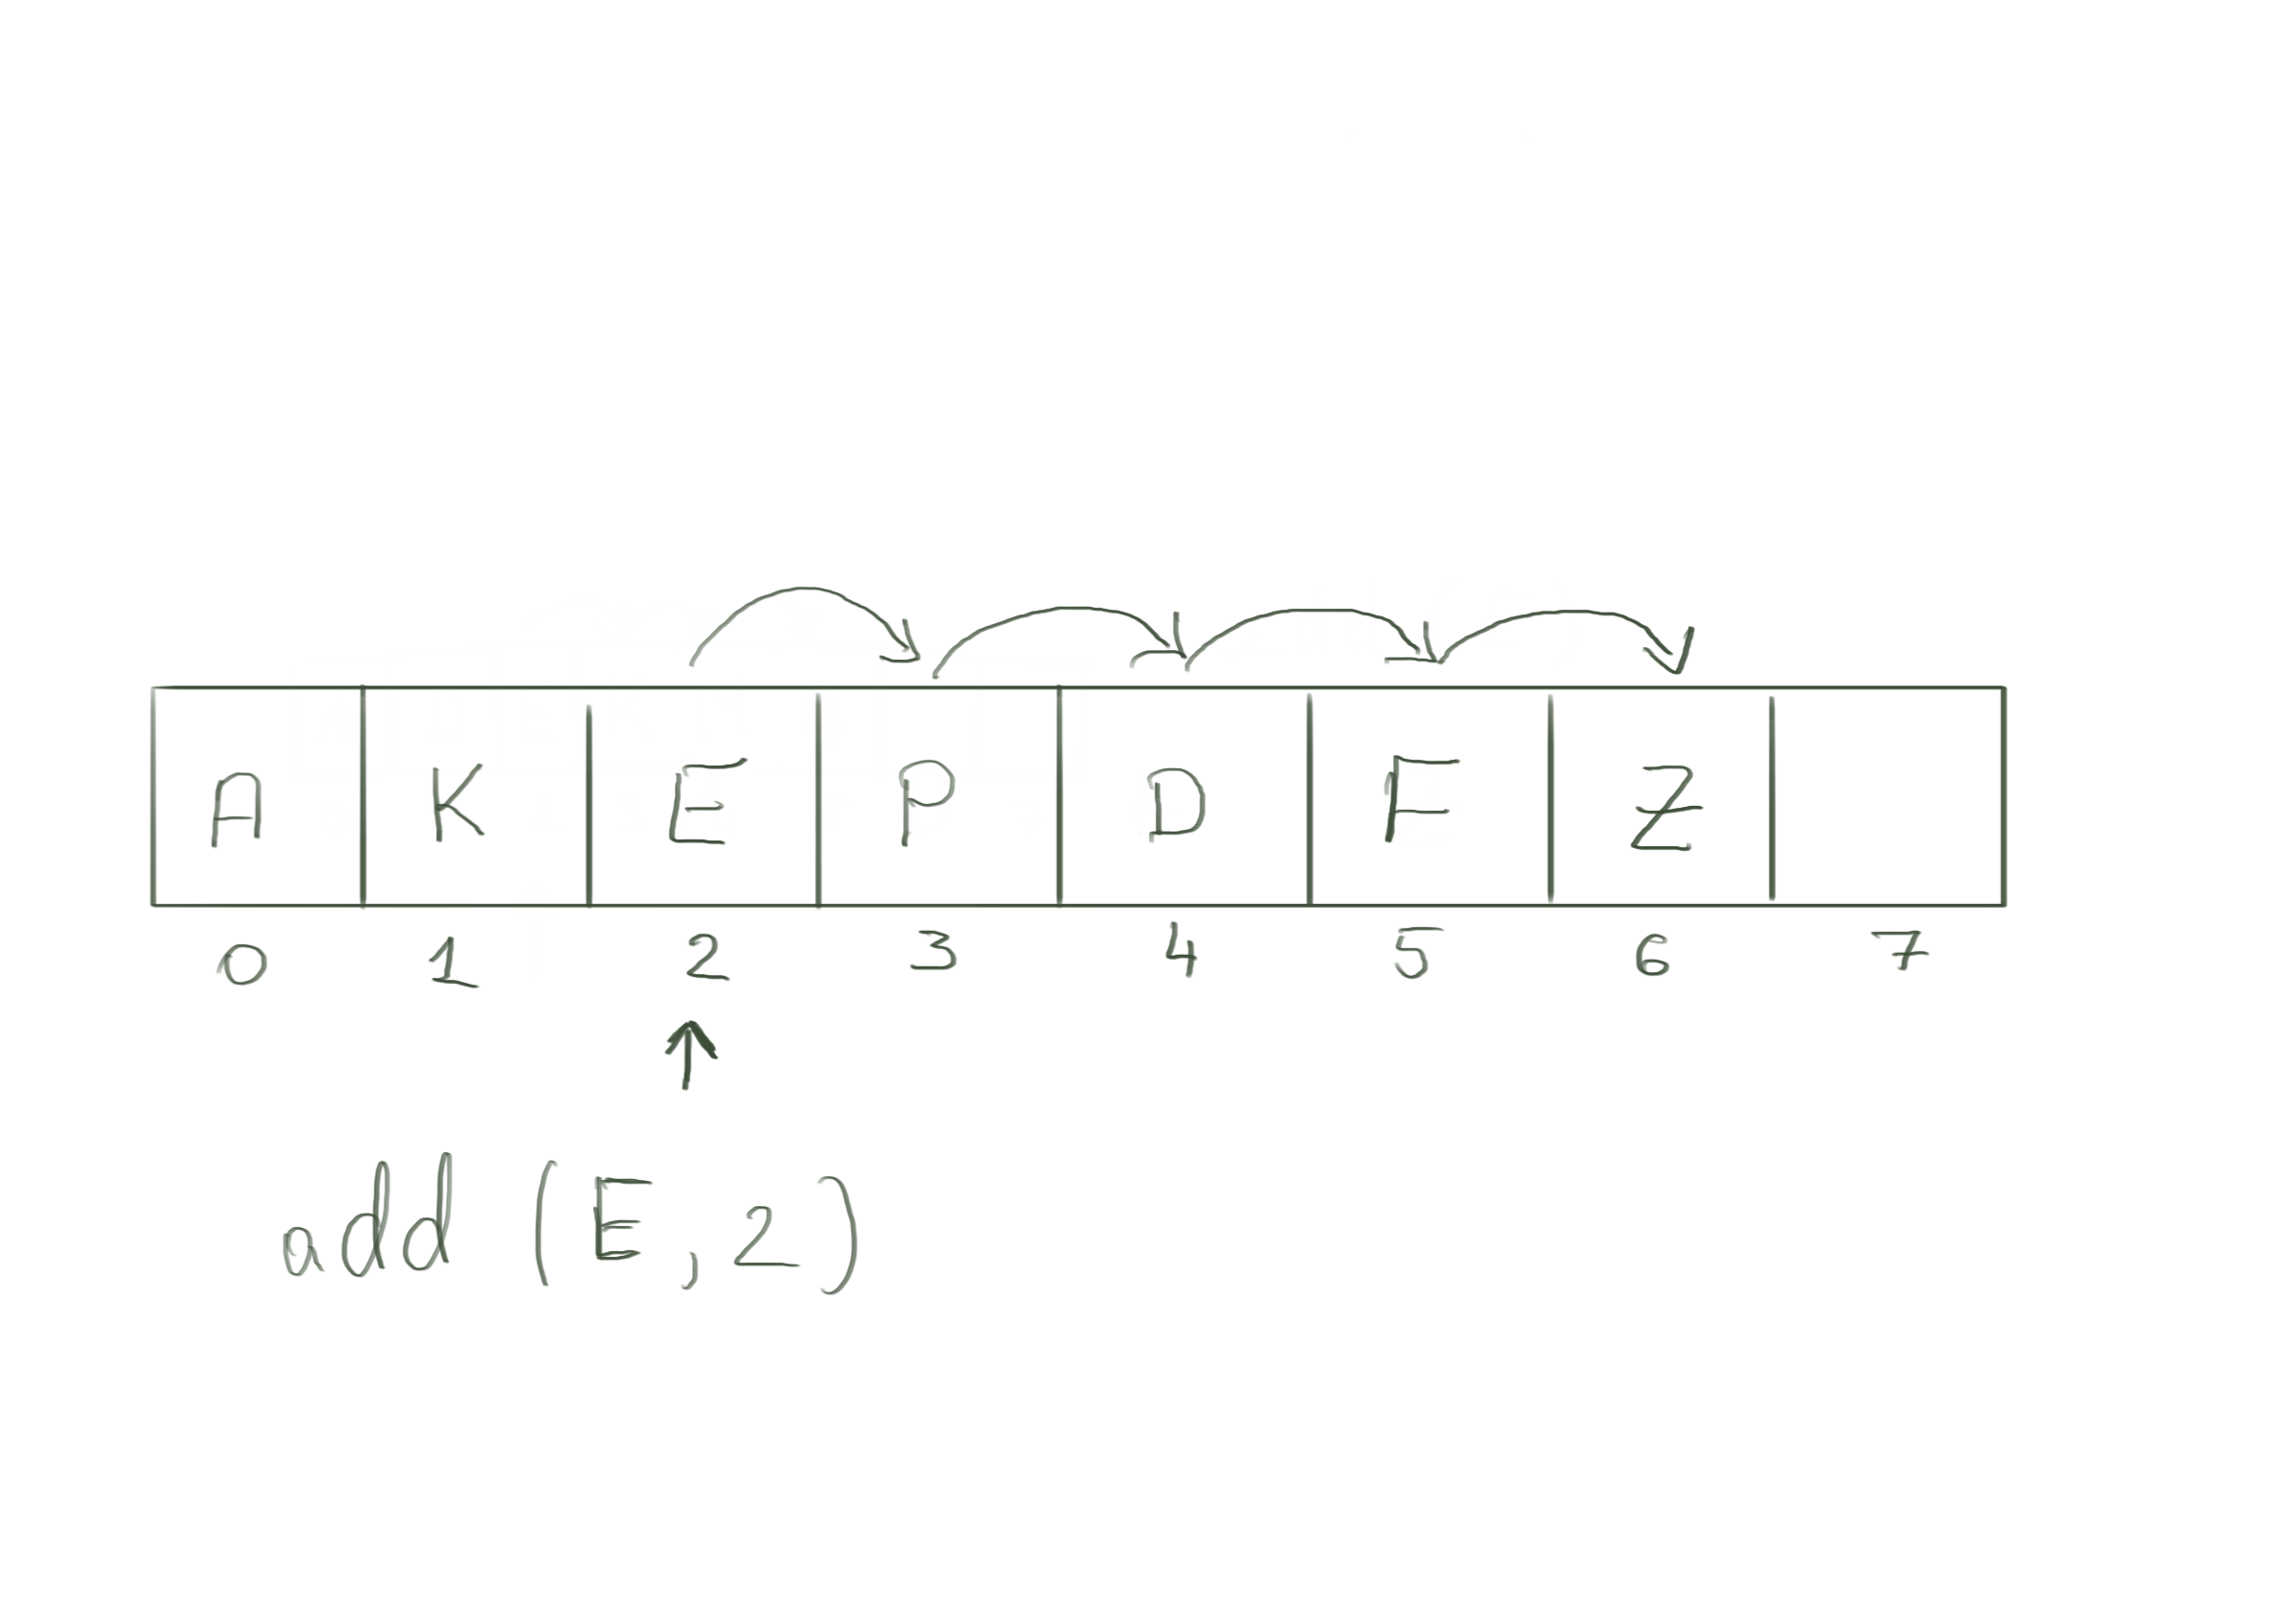 A K E P D F Z
0 1 2 3 4 5 6 7
add (E, 2)